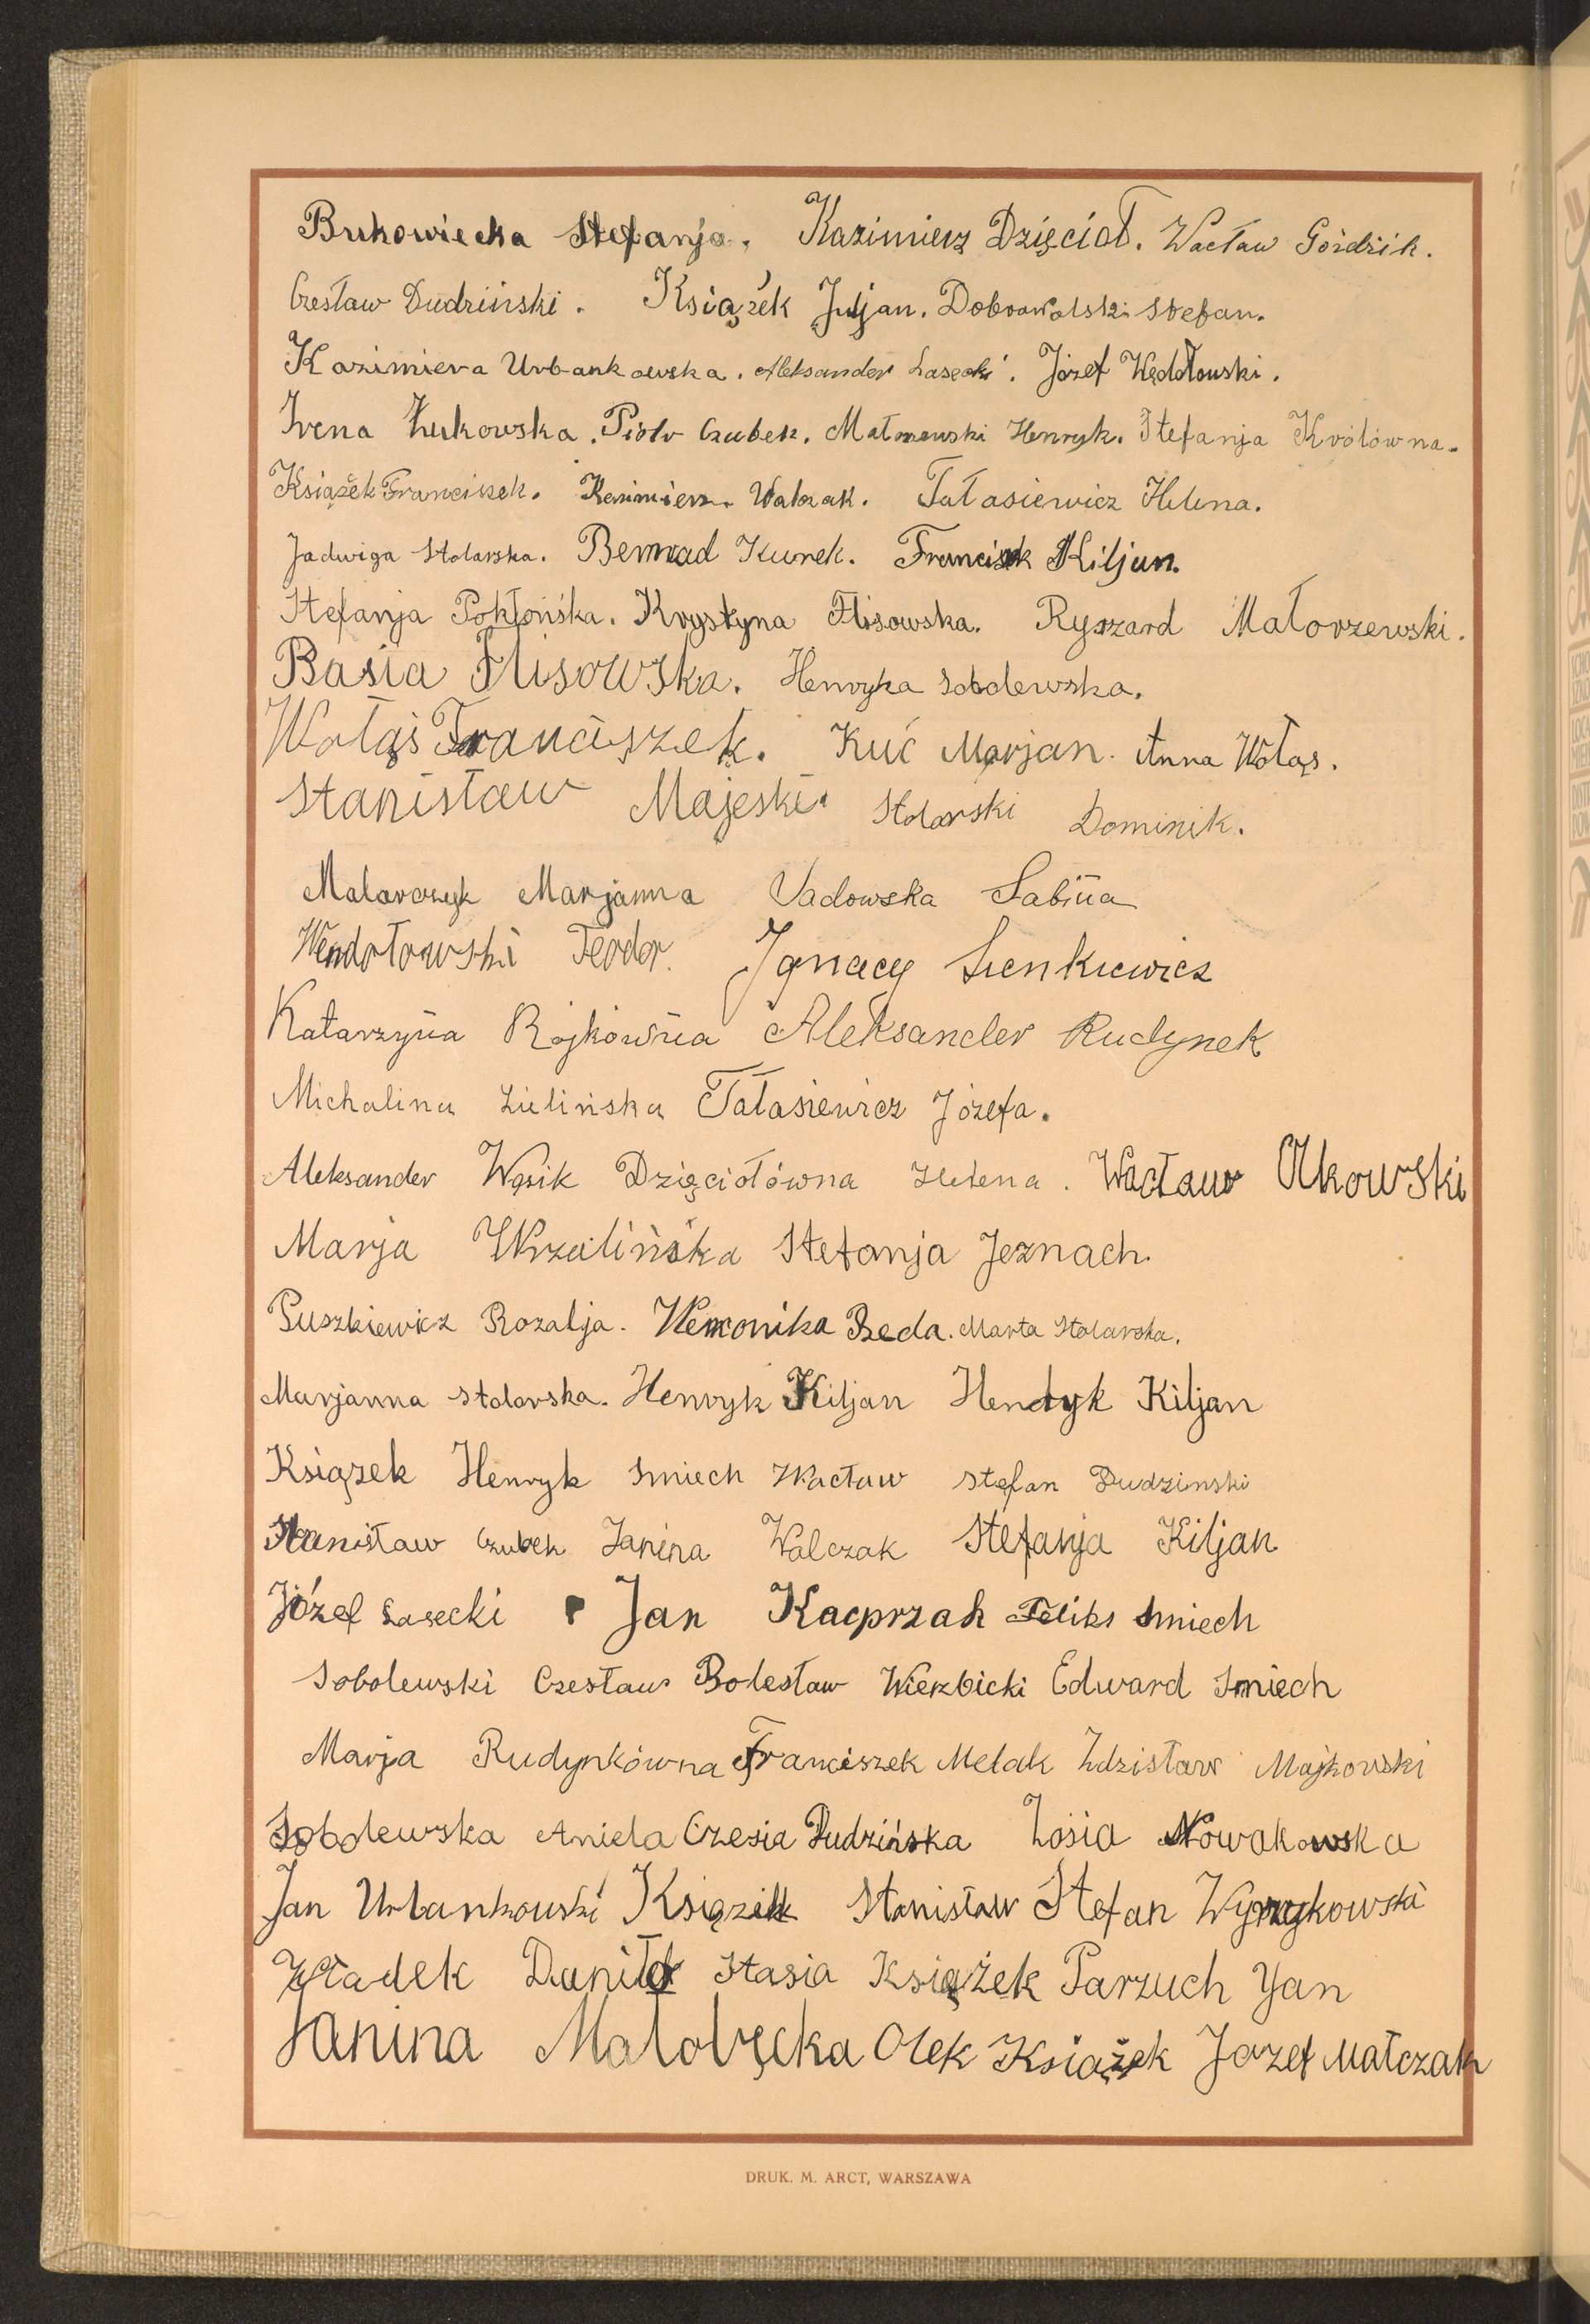 Bukowiecka Stefanja. Kazimierz Dzięcioł. Wacław Góździk.
Czesław Dudziński. Książek Juljan. Dobrowolski Stefan.
Kazimiera Urbankowska. Aleksander Lasecki. Józef Wędołowski.
Irena Żukowska. Piotr Czubek. Małorzewski Henryk. Stefanja Królówna.
Książek Franciszek. Kazimierz Walczak. Tałasiewicz Helena.
Jadwiga Stolarska. Bernard Kurek. Franciszek Kiljan.
Stefanja Pokłońska. Krystyna Flisowska. Ryszard Małorzewski.
Basia Flisowska. Henryka Sobolewska.
Wołąs Franciszek. Kuć Marjan. Anna Wołąs.
Stanisław Majeski. Stolarski Dominik.
Malarczyk Marjanna Sadowska Sabina
Wendołowski Teodor. Ignacy Sienkiewicz
Katarzyna Rojkówna Aleksander Rudynek
Michalina Zielińska Tałasiewicz Józefa.
Aleksander Wąsik Dzięciołówna Helena. Wacław Olkowski
Marja Wrzalińska Stefanja Jeznach.
Puszkiewicz Rozalja. Weronika Beda. Marta Stolarska.
Marjanna Stolarska. Henryk Kiljan Hendyk Kiljan
Książek Henryk Smiech Wacław Stefan Dudzinski
Stanisław Czubek Janina Walczak Stefanja Kiljan
Józef Lasecki Jan Kacprzak Feliks Smiech
Sobolewski Czesław Bolesław Wierzbicki Edward Smiech
Marja Rudynkówna Franciszek Melak Zdzisław Majkowski
Sobolewska Aniela Czesia Dudzińska Zosia Nowakowska
Jan Urbankowski Książek Stanisław Stefan Wyrzykowski
Władek Daniło Stasia Książek Parzuch Jan
Janina Małoręcka Olek Książek Jozef Małczak
DRUK. M. ARCT, WARSZAWA